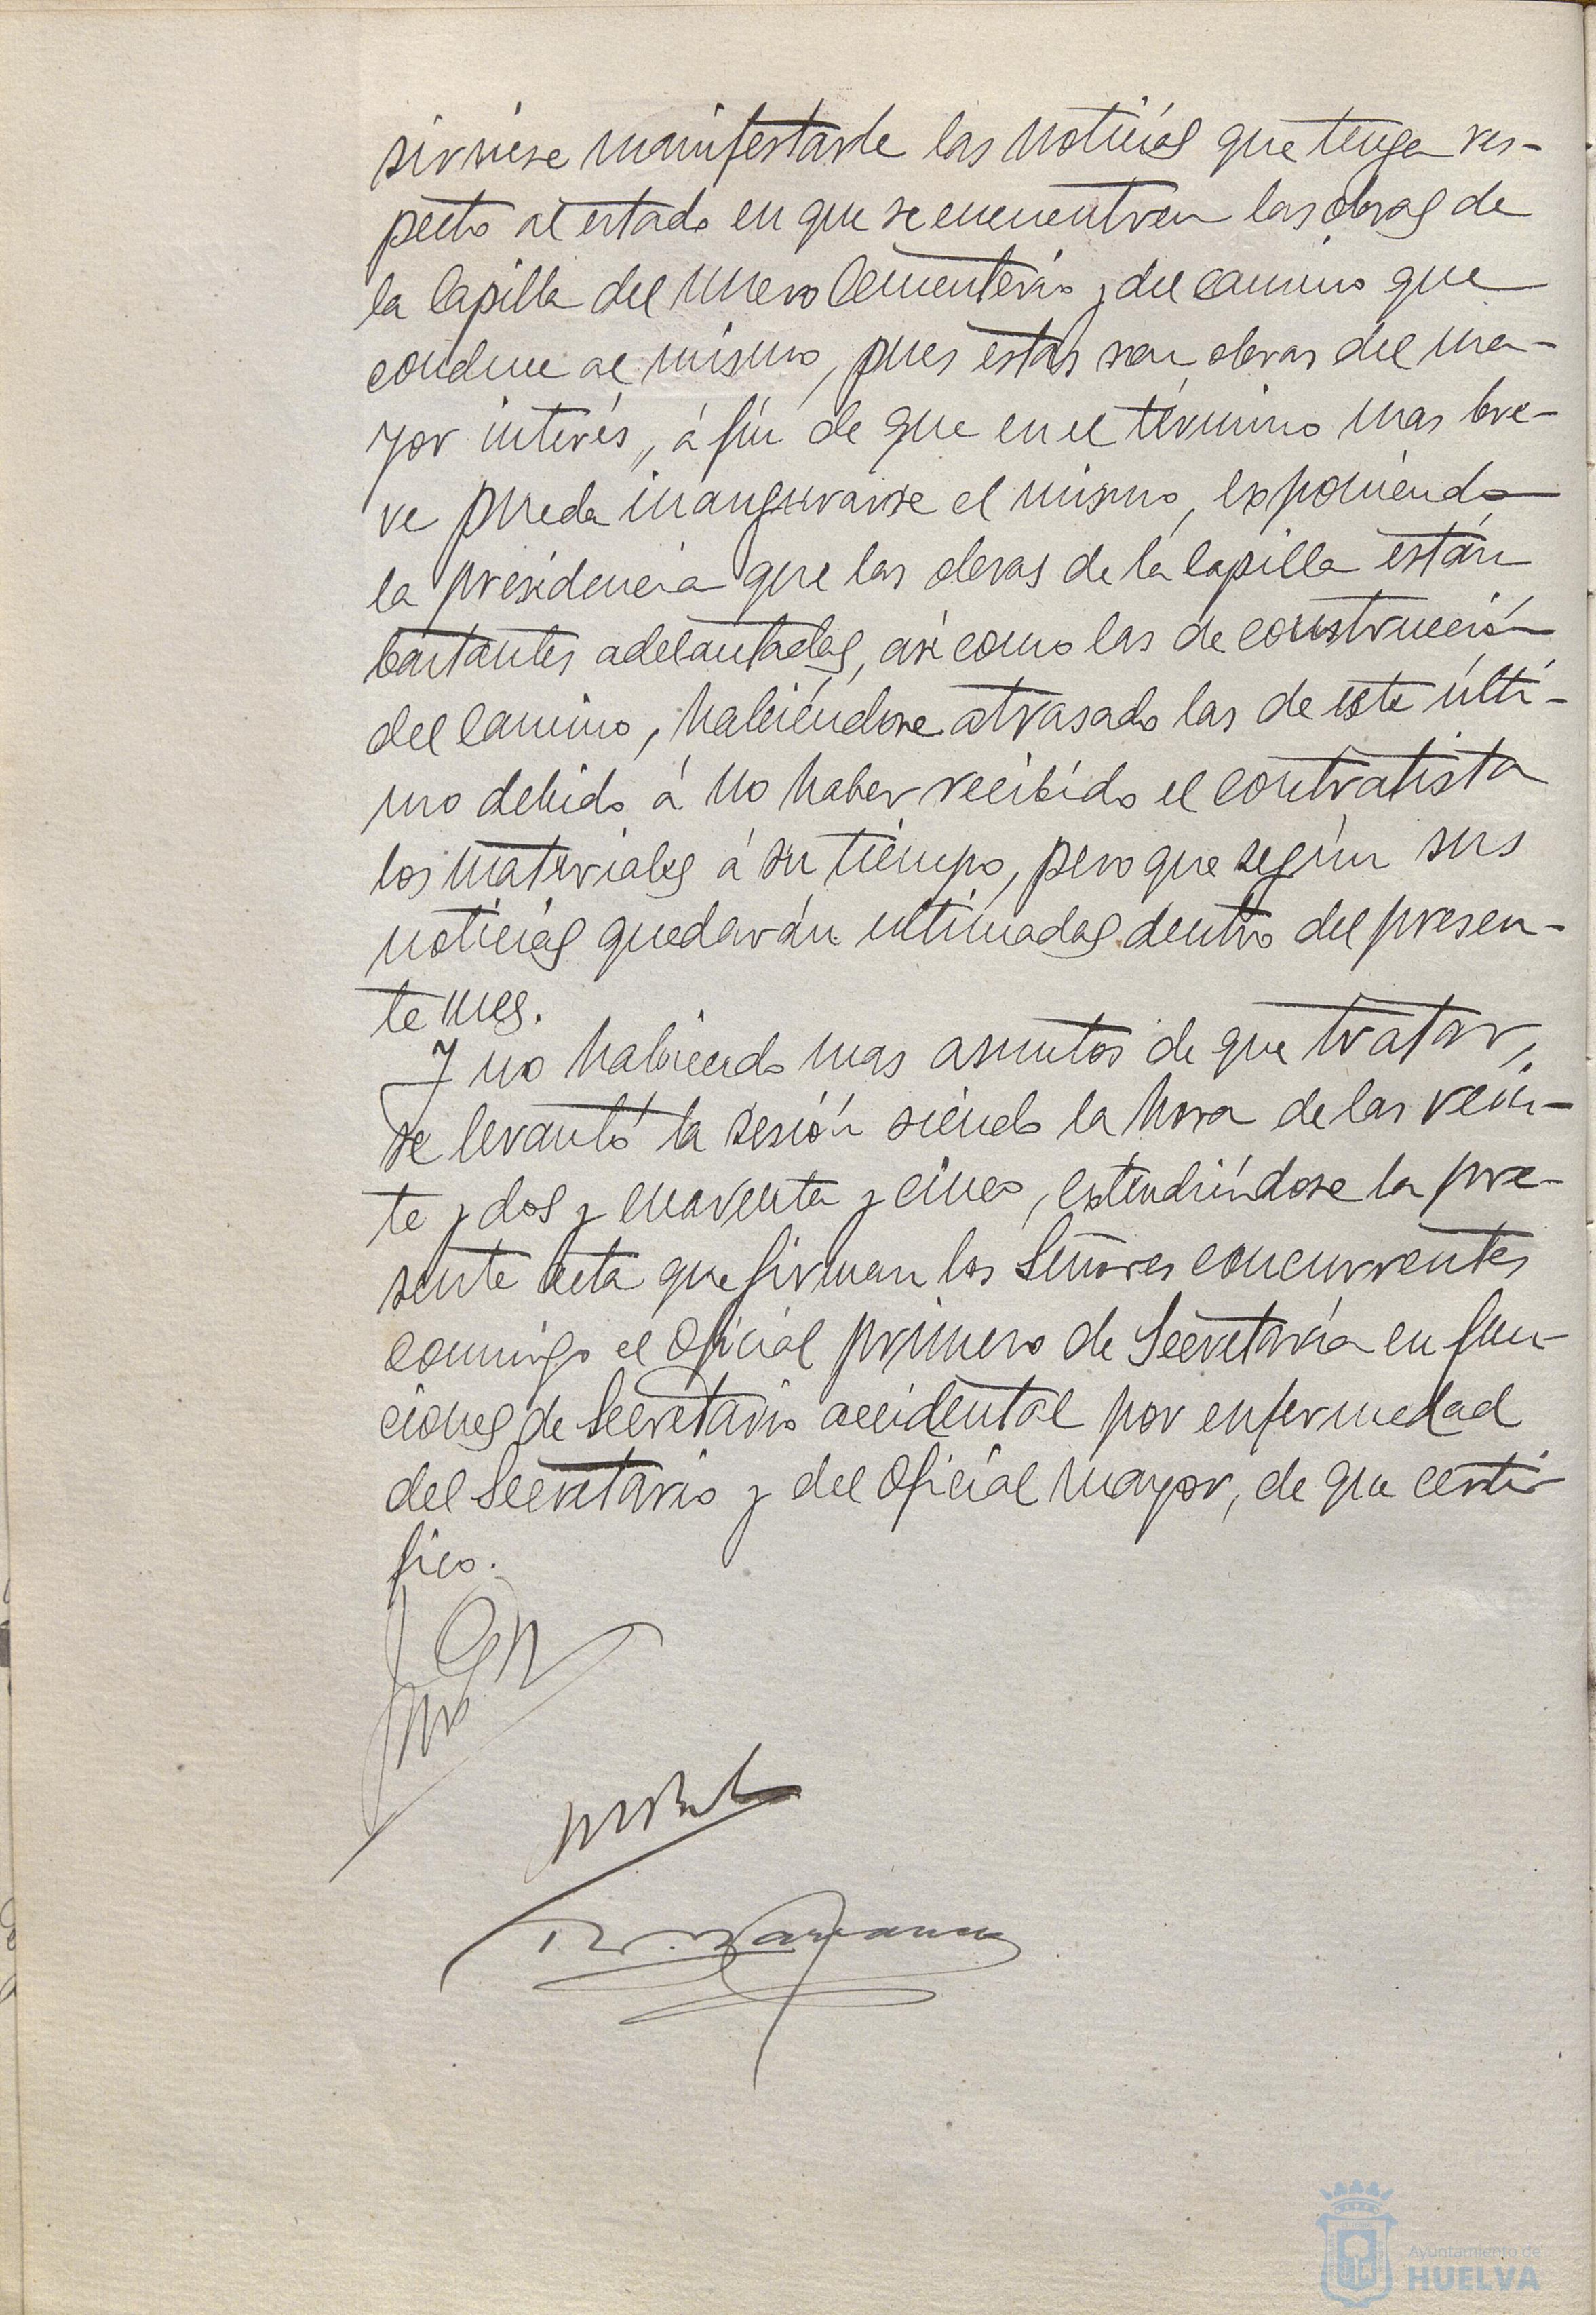 sirviese manifestarle las noticias que tenga res-
pecto al estado en que se encuentren las obras de
la Capilla del Nuevo Cementerio y del camino que
conduce al mismo, pues estas son obras del ma-
yor interés, á fin de que en el término mas bre-
ve pueda inaugurarse el mismo, exponiendo
la presidencia que las obras de la Capilla están
bastantes adelantadas, asi como las de construcción
del camino, habiéndose atrasado las de este últi-
mo debido á no haber recibido el contratista
los materiales á su tiempo, pero que según sus
noticias quedarán ultimadas dentro del presen-
te mes.
Y no habiendo mas asuntos de que tratar,
se levantó la sesión siendo la hora de las vein-
te y dos y cuarenta y cinco, extendiéndose la pre-
sente acta que firman los Señores concurrentes
conmigo el Oficial primero de Secretaría en fun-
ciones de Secretario accidental por enfermedad
del Secretario y del Oficial Mayor, de que certi-
fico.
Ayuntamiento de
HUELVA